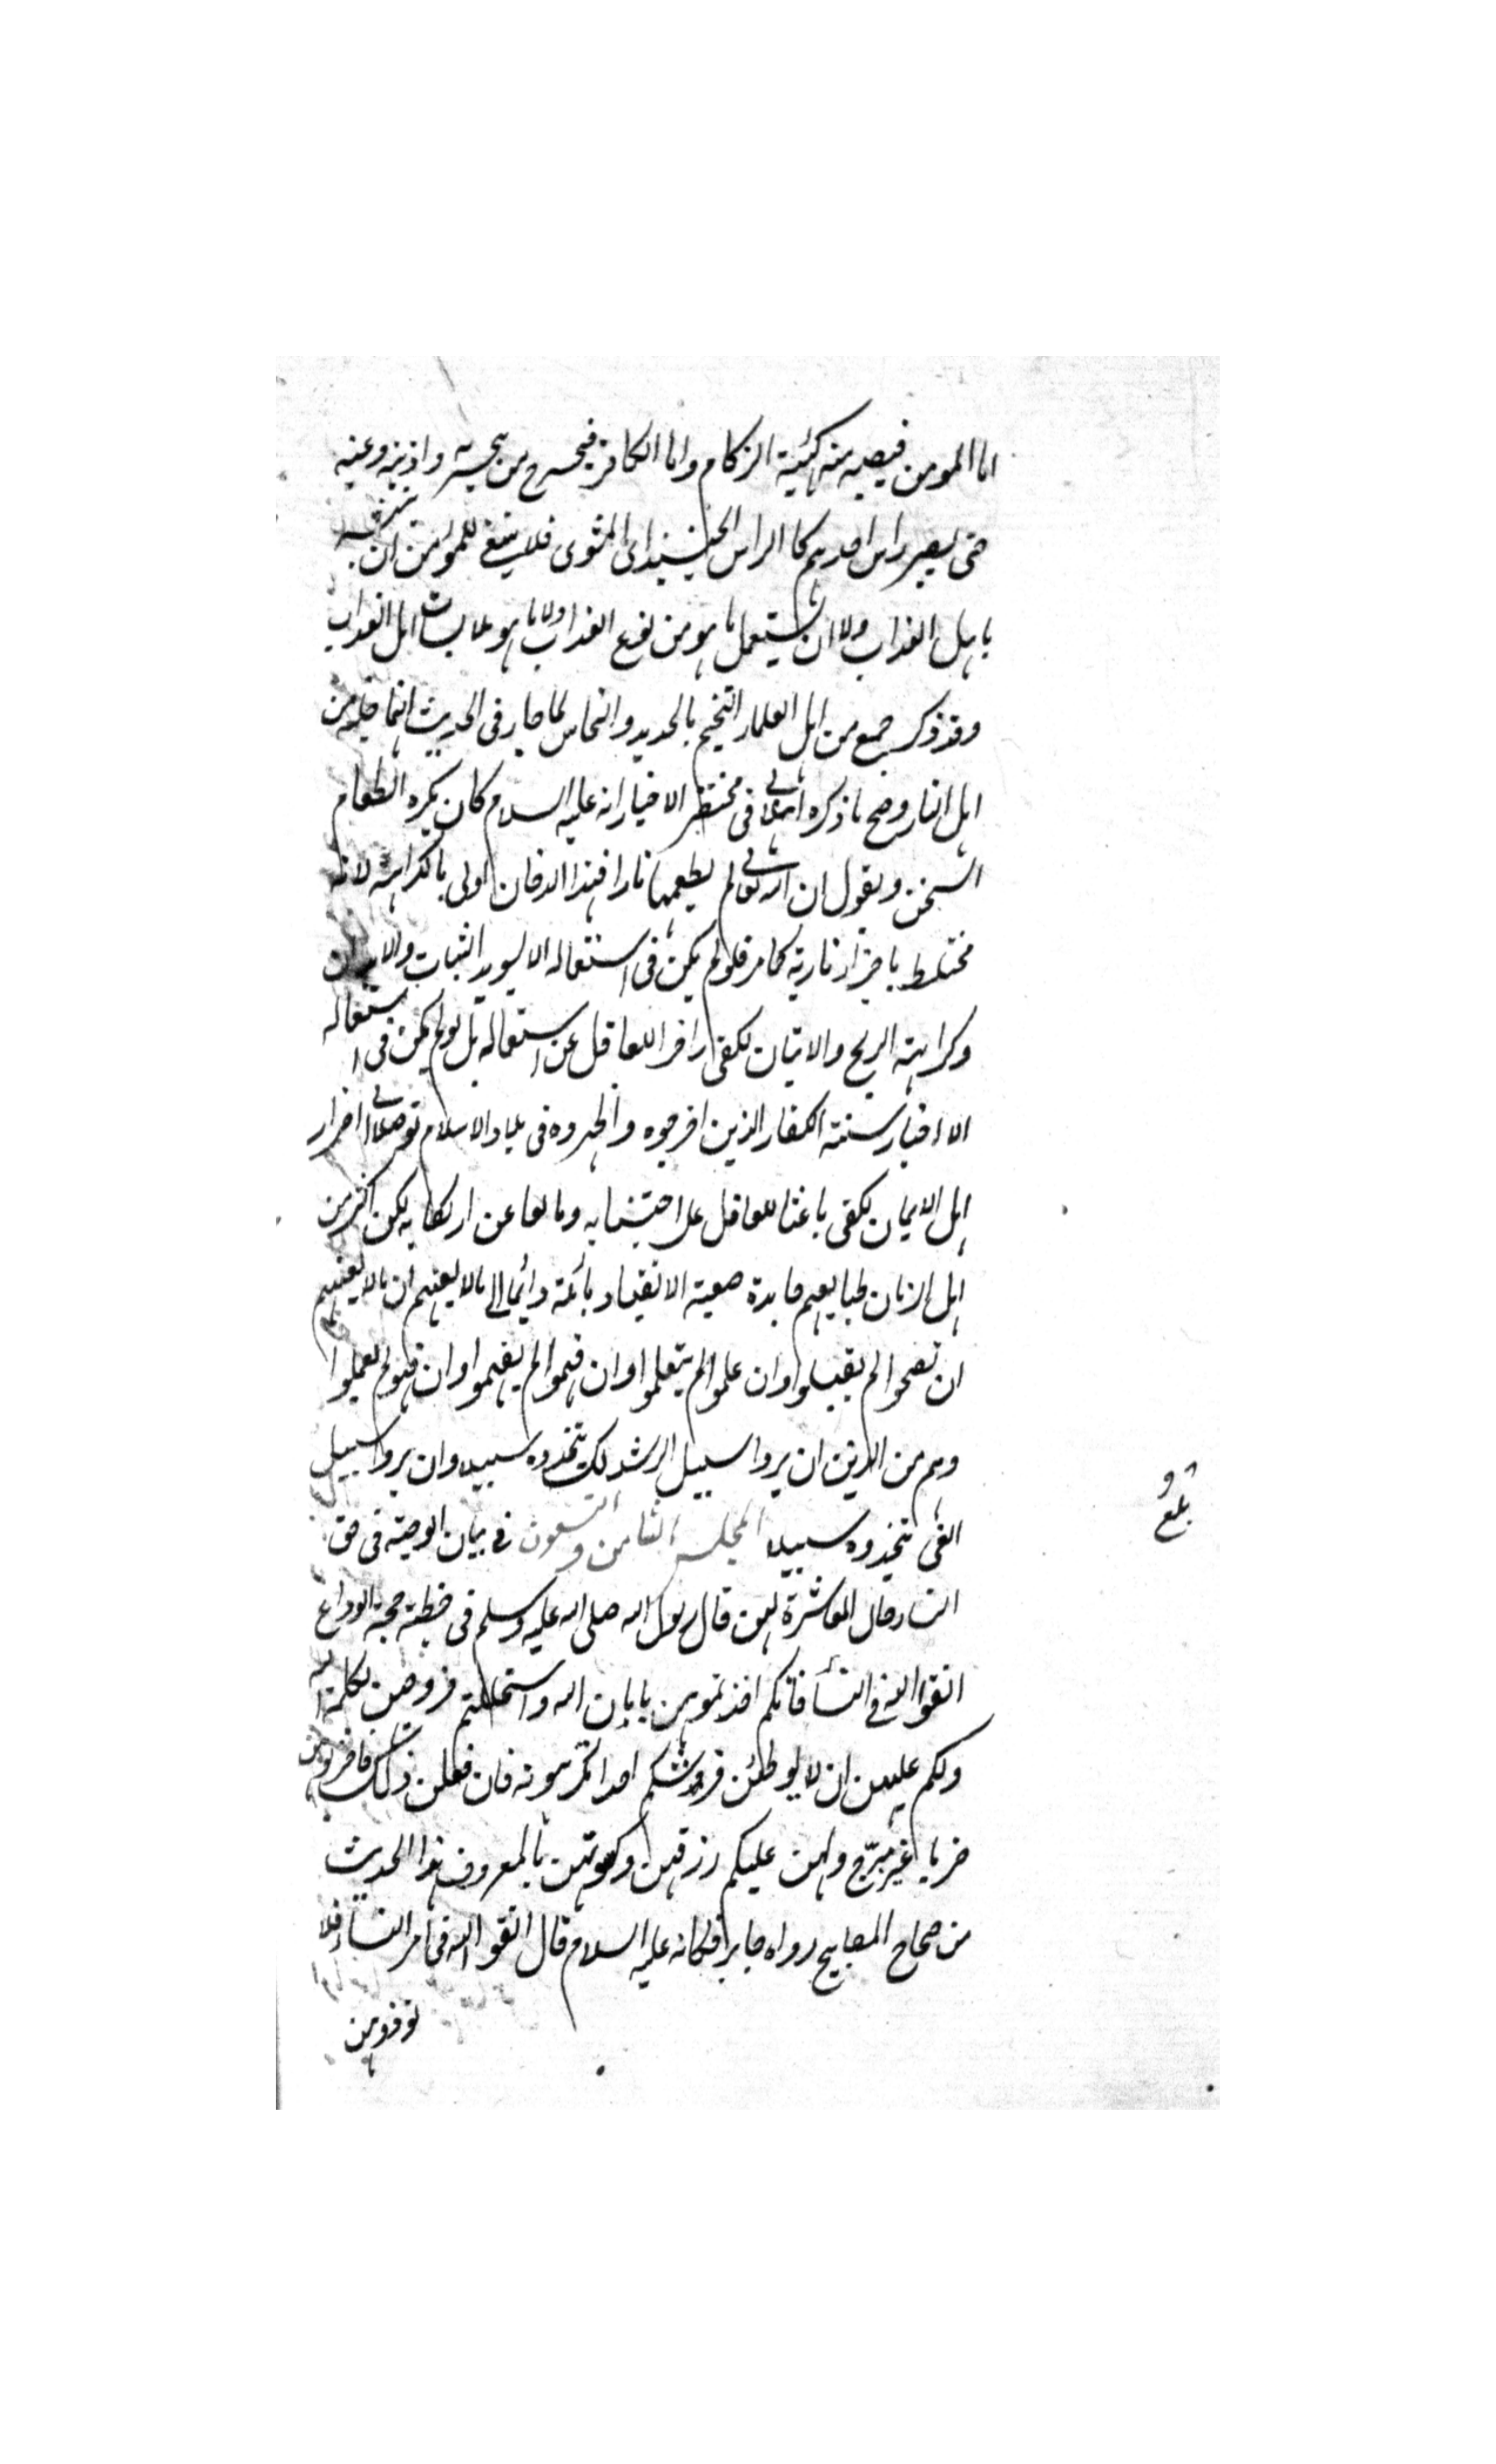 اما المومن فيصيبه منه كهيئة الزكام واما الكافر فيخرج من منخريه واذنيه وعينيه
حتى يصير راس احدهم كالراس الحنيذ اى المشوى فلا ينبغى للمؤمن ان يتشبه
باهل العذاب ولا ان يستعمل ما هو من نوع العذاب ولا ما هو ملابسات اهل العذاب
وقد ذكر جمع من اهل العلماء التختم بالحديد والنحاس لما جاء فى الحديث انهما حلية من
اهل النار وصح ما ذكره فى مختصر الاخيار انه عليه السلام كان يكره الطعام
السخن ويقول ان الله تعالى لم يطعمنا نارا فهذا الدخان اولى بالكراهة لانه
مختلط باجزاء نارية كما مر فلو لم يكن فى استعماله الا تسويد الثياب والابدان
وكراهة الريح والاتيان لكفى زاجرا للعاقل عن استعماله بل لو لم يكن فى استعماله
الا اختيار سنة الكفار الذين اخرجوه واظهروه فى بلاد الاسلام توصلا الى اضرار
اهل الايمان لكفى باعثا للعاقل على اجتنابه ومانعا عن ارتكابه لكن اكثر من
اهل الزمان طبايعهم جامدة صعبة الانقياد مائلة دائما الى ما لا يعنيهم
ان نصحوا لم يقبلوا وان علموا لم يتعلموا وان فهموا لم يفهموا وان فهموا لم يعملوا
وهم من الذين ان يروا سبيل الرشد لا يتخذوه سبيلا وان يروا سبيل
الغى يتخذوه سبيلا المجلس الثامن والتسعون فى بيان الوصية فى حق
النساء وحال المعاشرة لهن قال رسول الله صلى الله عليه وسلم فى خطبته حجة الوداع
اتقوا الله فى النساء فانكم اخذتموهن بامان الله واستحللتم فروجهن بكلمة الله
ولكم عليهن ان لا يوطئن فروشكم احدا تكرهونه فان فعلن ذلك فاضربوهن
ضربا غير مبرّح ولهن عليكم رزقهن وكسوتهن بالمعروف هذا الحديث
من صحاح المصابيح رواه جابر فكانه عليه السلام قال اتقوا الله فى امر النساء فلا
توذوهن